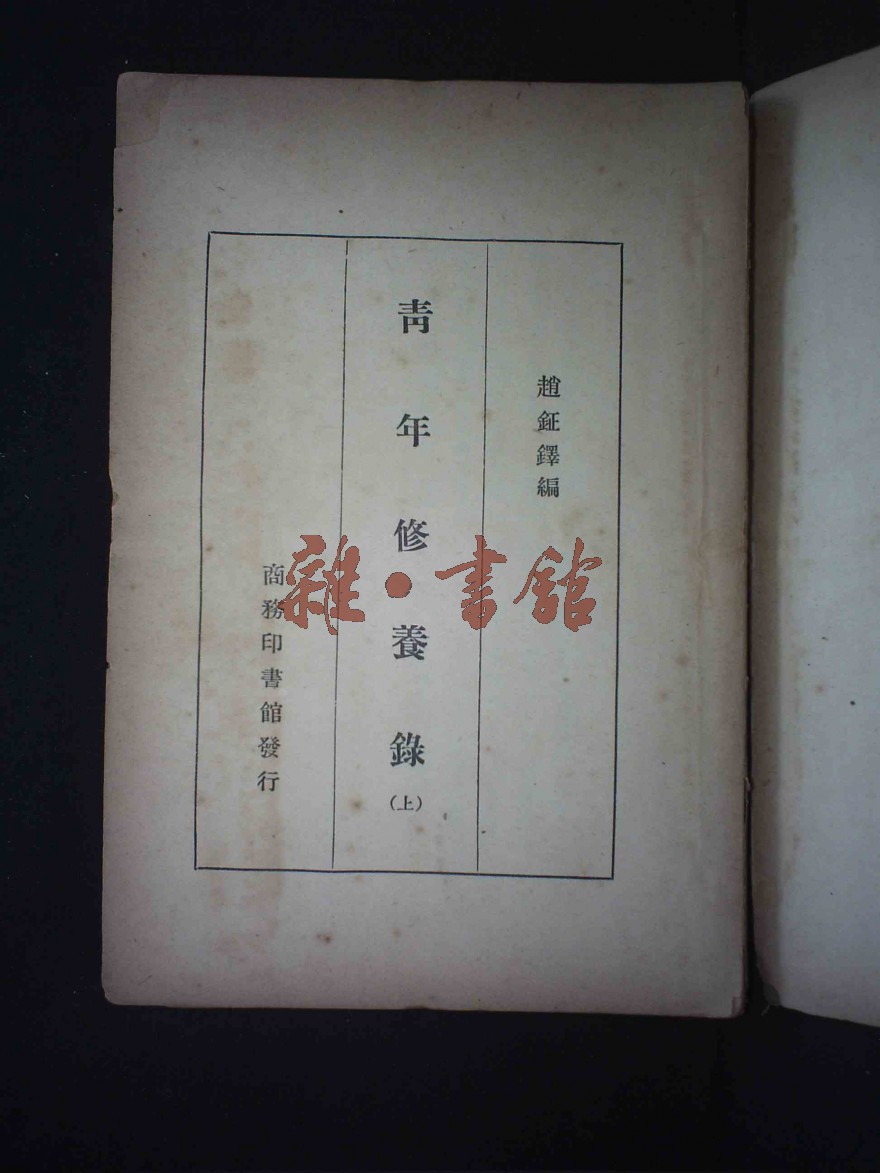 趙鉦鐸編
青年修養錄(上)
商務印書館發行
雜·書館